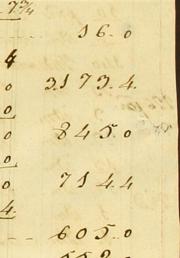 7¾
16. 0
4
0 3173. 4.
0
0 845. 0
0
0 714 4
4.
605. 0